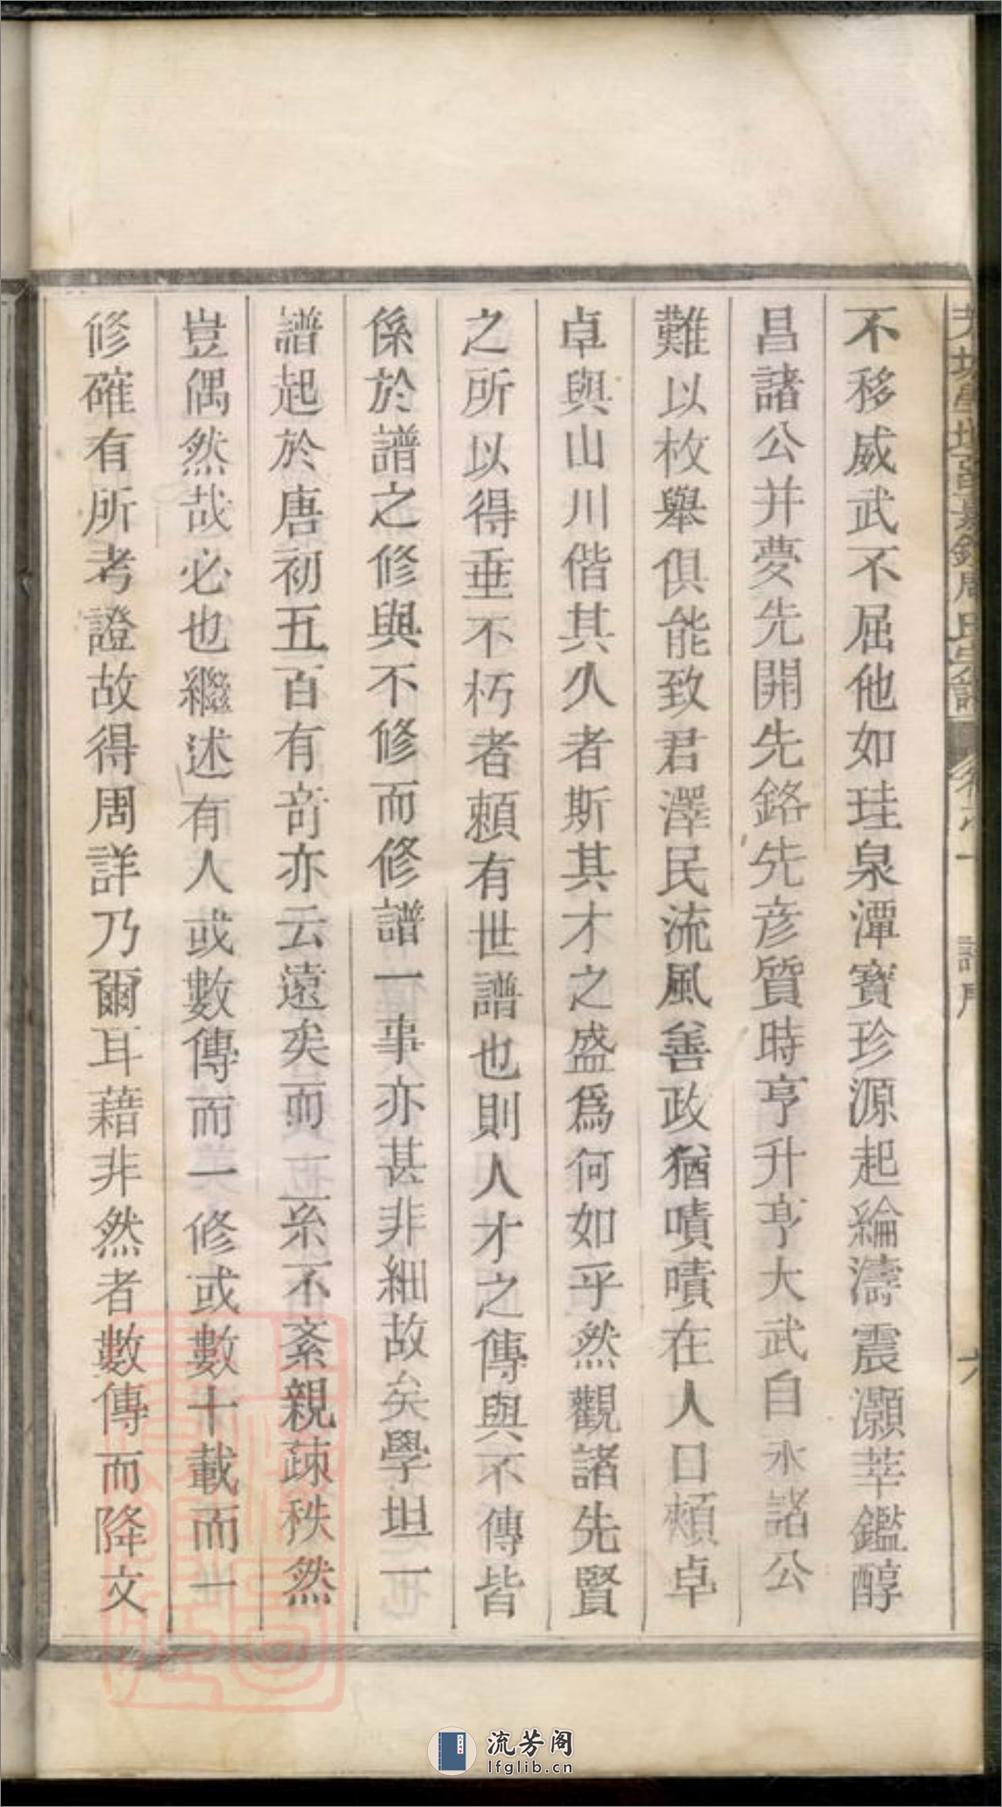 不移威武不屈他如珪泉潭寶珍源起綸濤震灝莘鑑醇
昌諸公并夢先開先鉻先彦質時亨升亨大武自永諸公
難以枚舉俱能致君澤民流風善政猶嘖嘖在人口頰卓
卓與山川偕其久者斯其才之盛爲何如乎然觀諸先賢
之所以得垂不朽者頼有世譜也則人才之傳與不傳皆
係於譜之修與不修而修譜一事亦甚非細故矣學坦一
譜起於唐初五百有奇亦云遠矣而一系不紊親疎秩然
豈偶然哉必也繼述有人或數傳而一修或數十載而一
修確有所考證故得周詳乃爾耳藉非然者數傳而降文
流芳阁
lfglib.cn